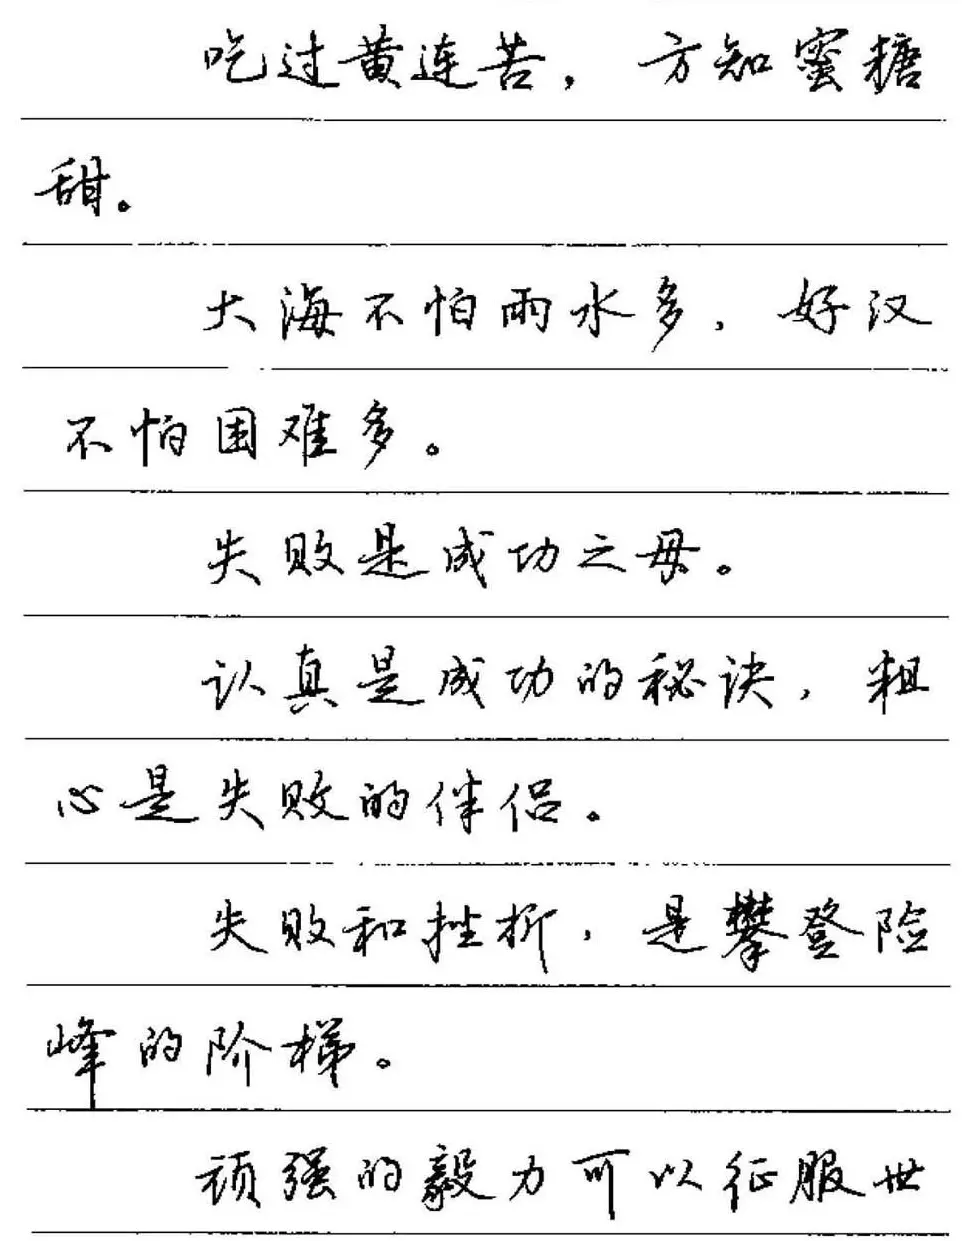 吃过黄连苦，方知蜜糖
甜。
大海不怕雨水多，好汉
不怕困难多。
失败是成功之母。
认真是成功的秘诀，粗
心是失败的伴侣。
失败和挫折，是攀登险
峰的阶梯。
顽强的毅力可以征服世